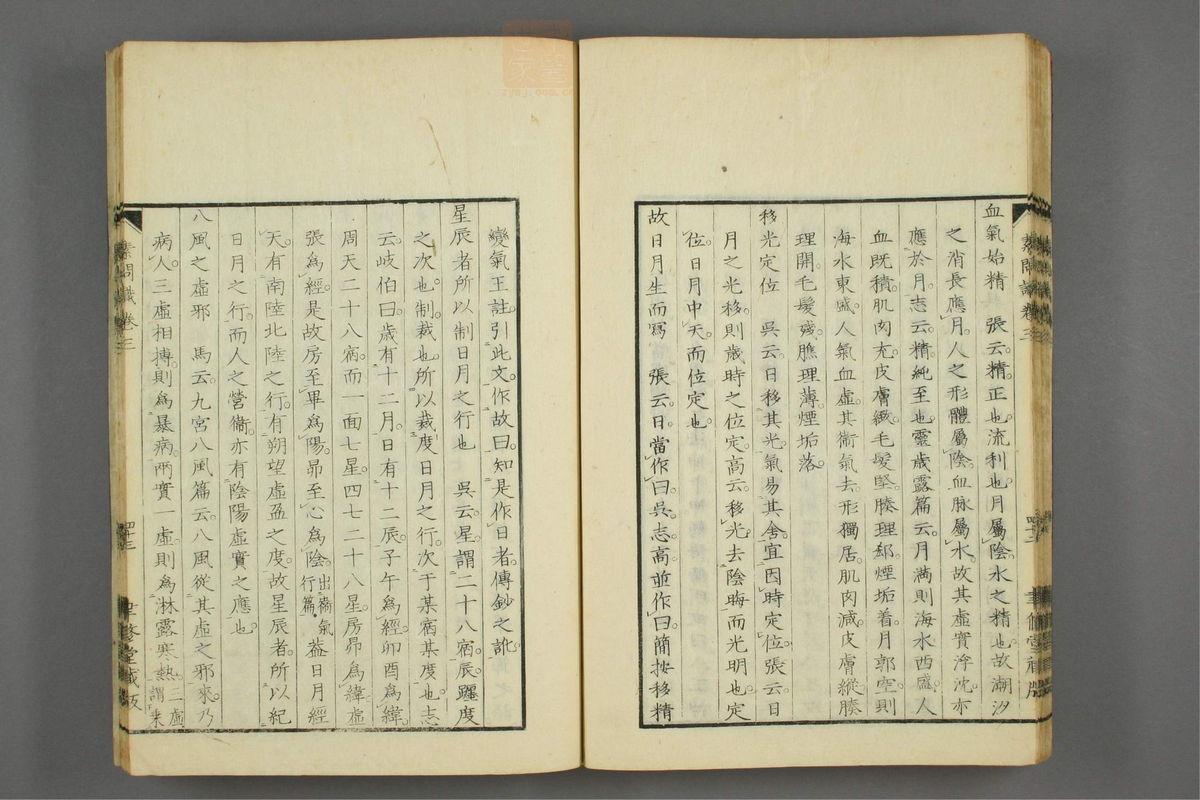 血氣始精　張云精正也流利也月屬陰水之精也故潮汐
之消長應月人之形體屬陰血脉屬水故其虛實浮沈亦
應於月志云精純至也靈歲露篇云月滿則海水西盛人
血氣積肌肉充皮膚緻毛髮堅腠理郄煙垢着月郭空則
海水東盛人氣血虛其衛氣去形獨居肌肉減皮膚縱腠
理開毛髮殘膲理薄煙垢落
移光定位　吳云日移其光氣易其舍宜因時定位張云日
月之光移則歲時之位定高云移光去陰晦而光明也定
位日月中天而位定也
故日月生而寫　張云日當作曰吳志高並作曰簡按移精
變氣王註引此文作故曰知是作日者傳鈔之訛
星辰者所以制日月之行也　吳云星謂二十八宿辰躔度
之次也制裁也所以裁度日月之行次于某宿某度也志
云岐伯曰歲有十二月日有十二辰子午為經卯酉為緯
周天二十八宿而一面七星四七二十八星房昴為緯虛
張為經是故房至畢為陽昴至心為陰出衛氣行篇蓋日月經
天有南陸北陸之行有朔望虛盈之度故星辰者所以紀
日月之行而人之營衛亦有陰陽虛實之應也
八風之虛邪　馬云九宮八風篇云八風從其虛之邪來乃
病人三虛相摶則為暴病兩實一虛則為淋露寒熱三虛謂来
素問識卷三
四十三
聿修堂藏版